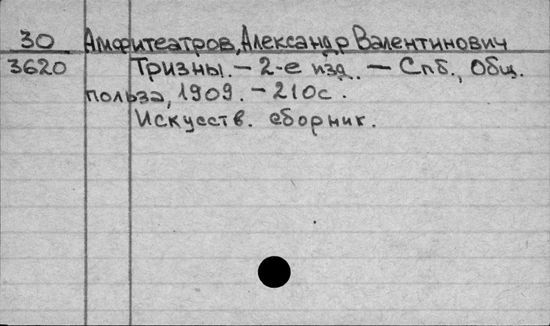 30 Амфитеатров, Александр Валентинович
3620 Тризны. - 2-е изд. - Спб., Общ.
польза, 1909. - 210с.
Искусств. сборник.